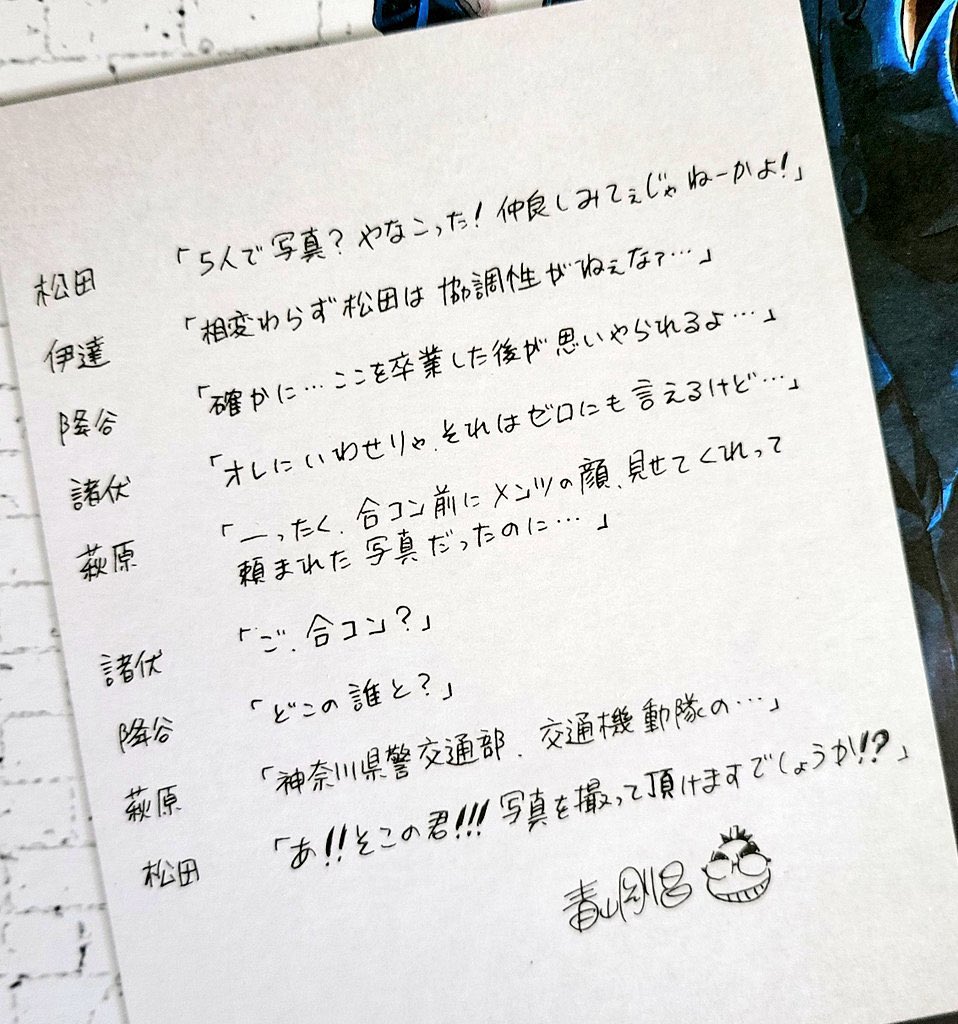 松田 「5人で写真？やなこった！仲良しみてぇじゃねーかよ！」
伊達 「相変わらず松田は協調性がねぇなァ…」
降谷 「確かに…ここを卒業した後が思いやられるよ…」
諸伏 「オレにいわせりゃ、それはゼロにも言えるけど…」
萩原 「ーったく、合コン前にメンツの顔、見せてくれって
頼まれた写真だったのに…」
諸伏 「ご、合コン？」
降谷 「どこの誰と？」
萩原 「神奈川県警交通部、交通機動隊の…」
松田 「あ!!そこの君!!!写真を撮って頂けますでしょうか!?」
青山剛昌